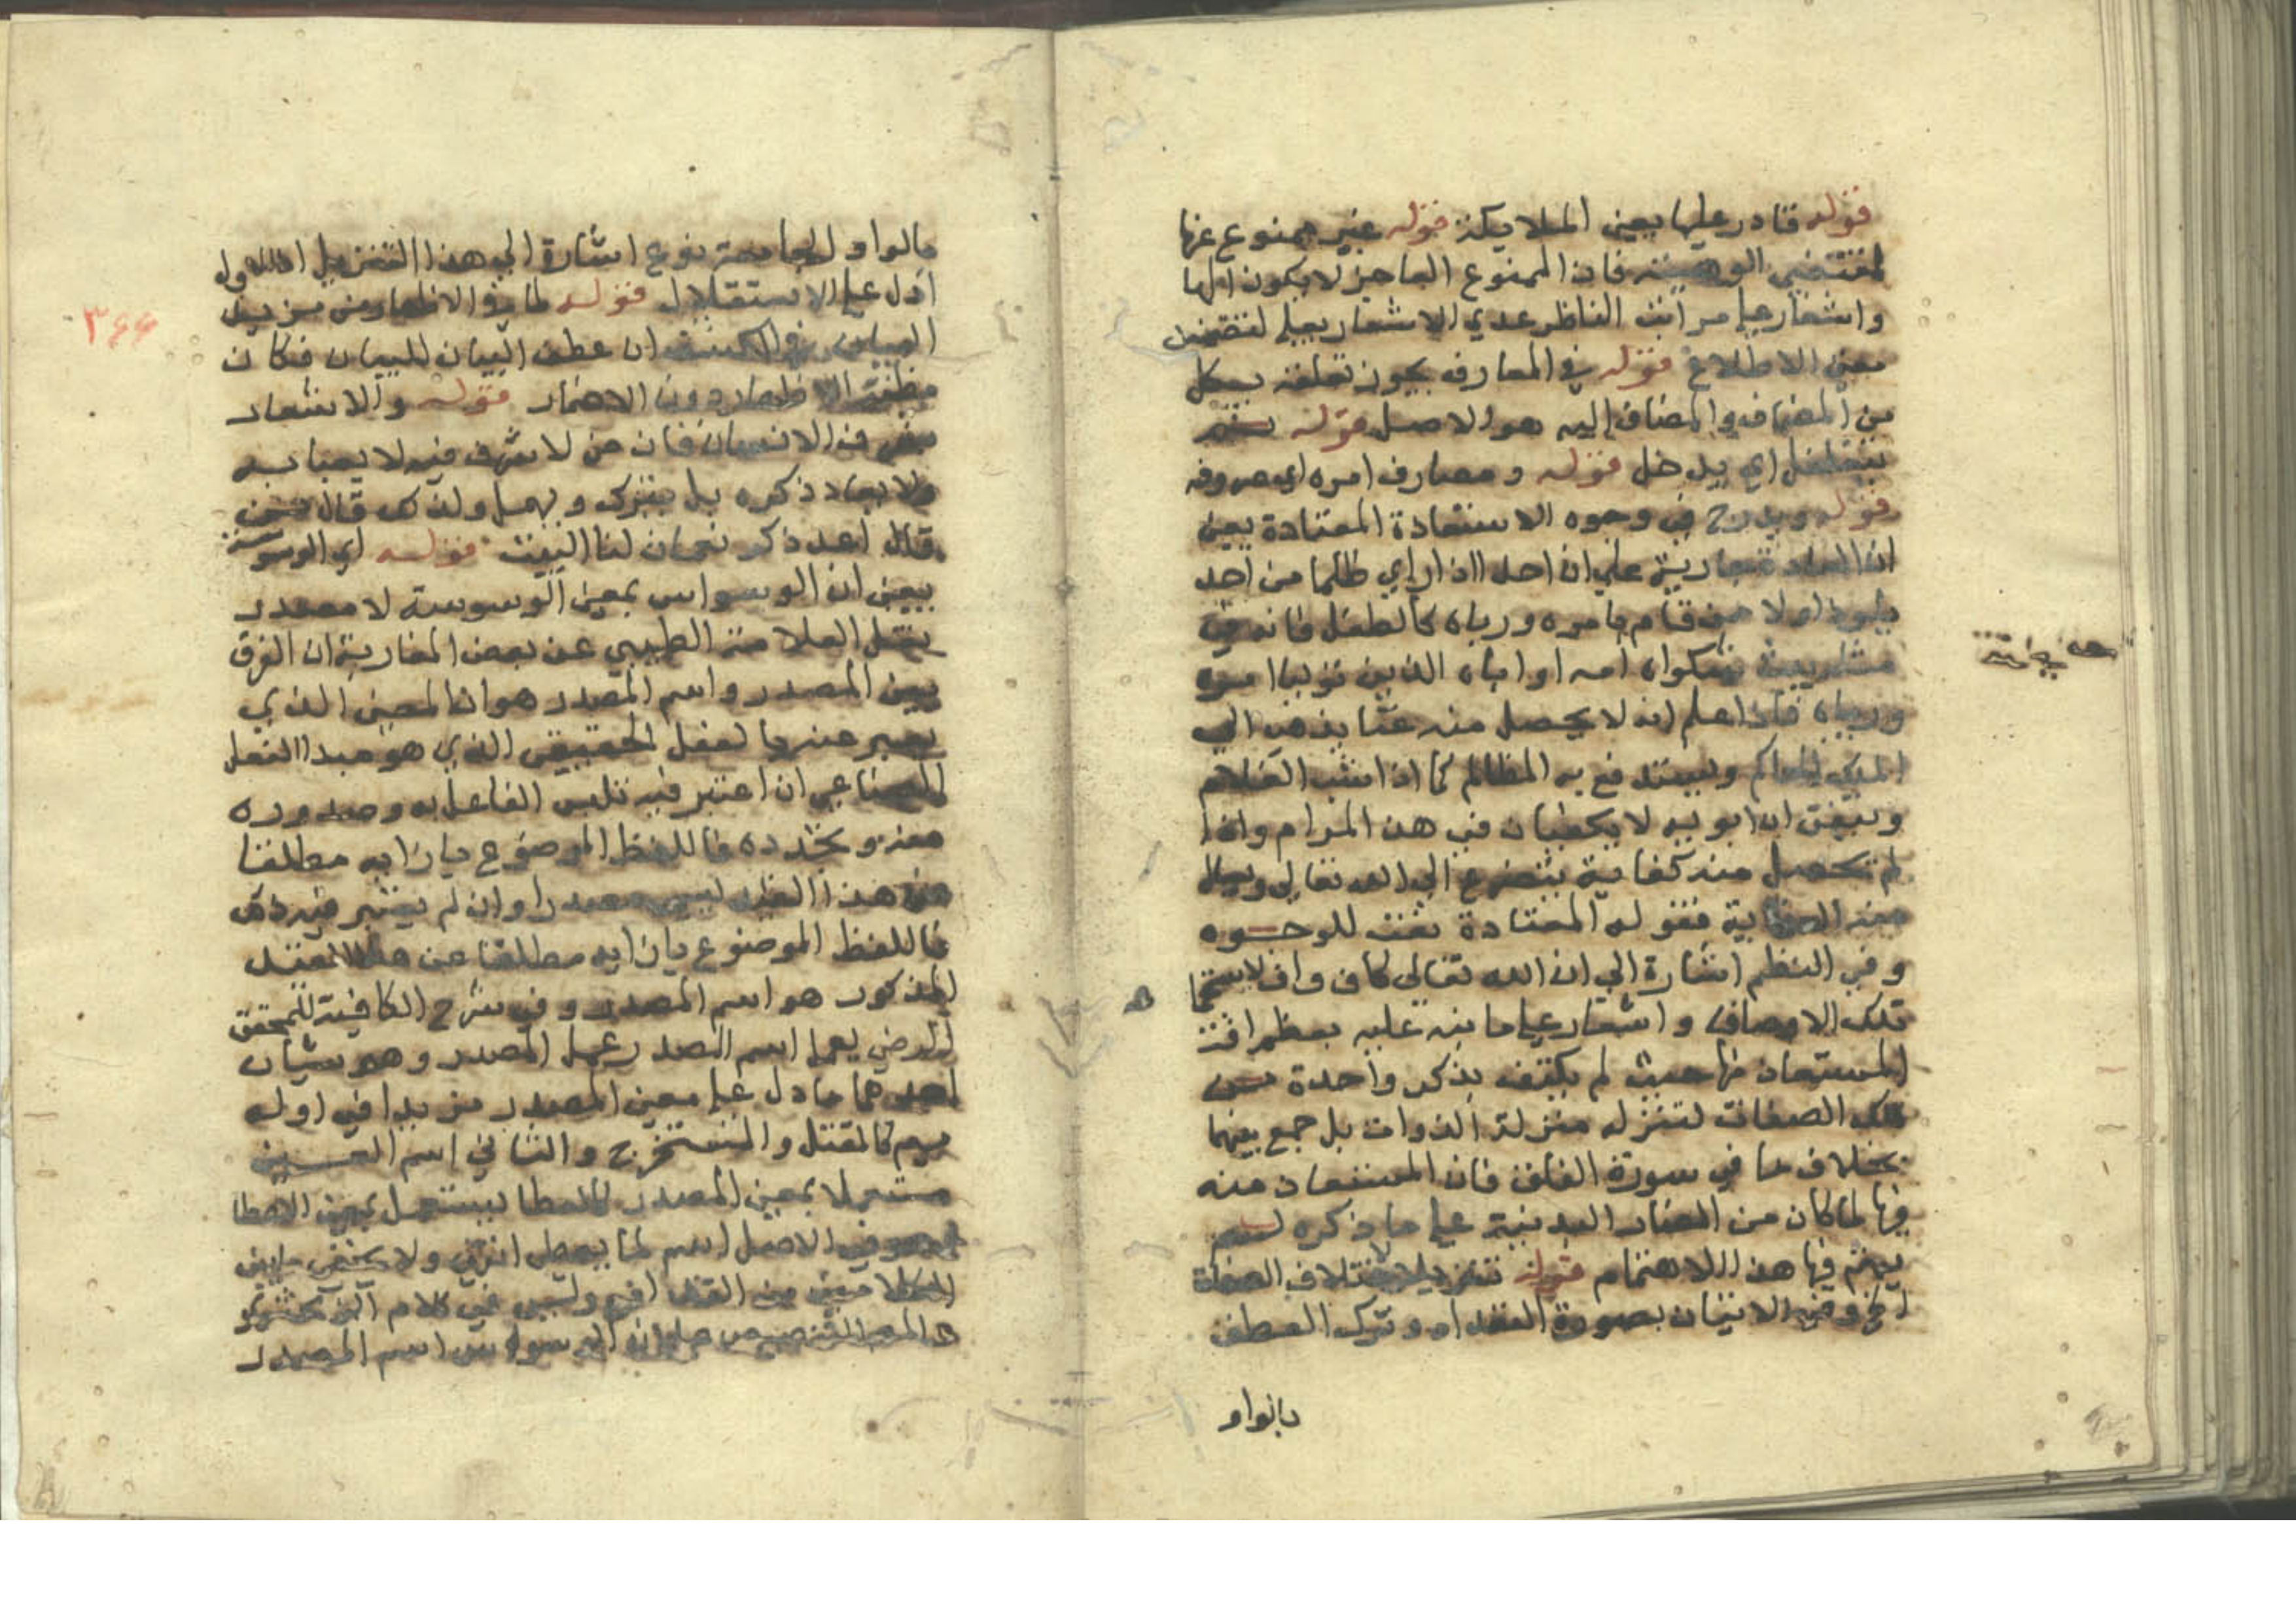 قوله قادر عليها يعني الملايكة قوله غير ممنوع عنها
لمقتضي الوهيته فان الممنوع العاجز لا يكون الها
واشعار على مراتب الناظر عدي الاشعار بعلى لتضمن
معنى الاطلاع قوله في المعارف يجوز تعلقه بكل
من المضاف والمضاف إليه هو الاصل قوله ثم
يتغلغل اي يدخل قوله ومصارف امره اي صروفه
قوله ويدرج في وجوه الاستعاذة المعتادة يعني
ان العادة جارية على ان احدا اذا راي ظلما من احد
يلوذ اولا من قام بامره ورباه كالطفل فانه في
يشكواه امه او اباه الذين توليا امره
ورباه فاذا علم انه لا يحصل منه غنا يذهب الي
الملك الحاكم ويستدفع به المظالم كما اذا شب الغلام
وتيقن ان ابويه لا يكفيان في هذا المرام واذا
لم تحصل منه كفاية يتضرع الي الله تعالي ويسال
منه الكفاية فقوله المعتادة نعت للوجوه
وفي النظم اشارة الي ان الله تعالى كاف واف لاستجما
تلك الاوصاف واشعار على ما نبه عليه بعظم افة
المستعاذ منها حيث لم يكتف بذكر واحدة من
تلك الصفات لتنزله منزلة الذوات بل جمع بينهما
بخلاف ما في سورة الفلق فان المستعاذ منه
فيها لما كان من المضار البدنية على ما ذكره لم
يهتم فيها هذا الاهتمام قوله تنزيلا لاختلاف الصفات
الخ وفيه الاتيان بصورة التعداد وترك العطف
بالواو
بالواو الجامعة نوع اشارة الى هذا التنزيل اذ الاول
ادل على الاستقلال قوله لما في الاظهار من مزيد
البيان في الكشف ان عطف البيان للبيان فكان
مظنة الاظهار دون الاضمار قوله والاشعار
بشرف الانسان فان من لا شرف فيه لا يعبا به
ولا يعاد ذكره بل يترك ويهمل ولذلك قال من
قال اعد ذكر نعمان لنا البيت قوله اي الوسوسة
يعني ان الوسواس بمعنى الوسوسة لا مصدر
نقل العلامة الطيبي عن بعض المغاربة ان الفرق
بين المصدر واسم المصدر هو ان المعنى الذي
يعبر عنه بالفعل الحقيقي الذي هو مبدا الفعل
الصناعي ان اعتبر فيه تلبس الفاعل به وصدوره
منه وتجدده فاللفظ الموضوع بازايه مطلقا
عن هذا القيد ليس مصدرا وان لم يعتبر فيه ذلك
فاللفظ الموضوع بازايه مطلقا عن هذا القيد
المذكور هو اسم المصدر وفي شرح الكافية للمحقق
الرضي يعمل اسم المصدر عمل المصدر وهو شيئان
احدهما ما دل على معنى المصدر مزيدا في اوله
ميم كالمقتل والمستخرج والثاني اسم العين
مستعملا بمعنى المصدر كالعطا يستعمل بمعنى الاعطا
وهو في الاصل اسم لما يعطى انتهى ولا يخفى ما بين
الكلامين من التدافع وليس في كلام الزمخشري
التنصيص على ان الوسواس اسم المصدر
٣٦٦